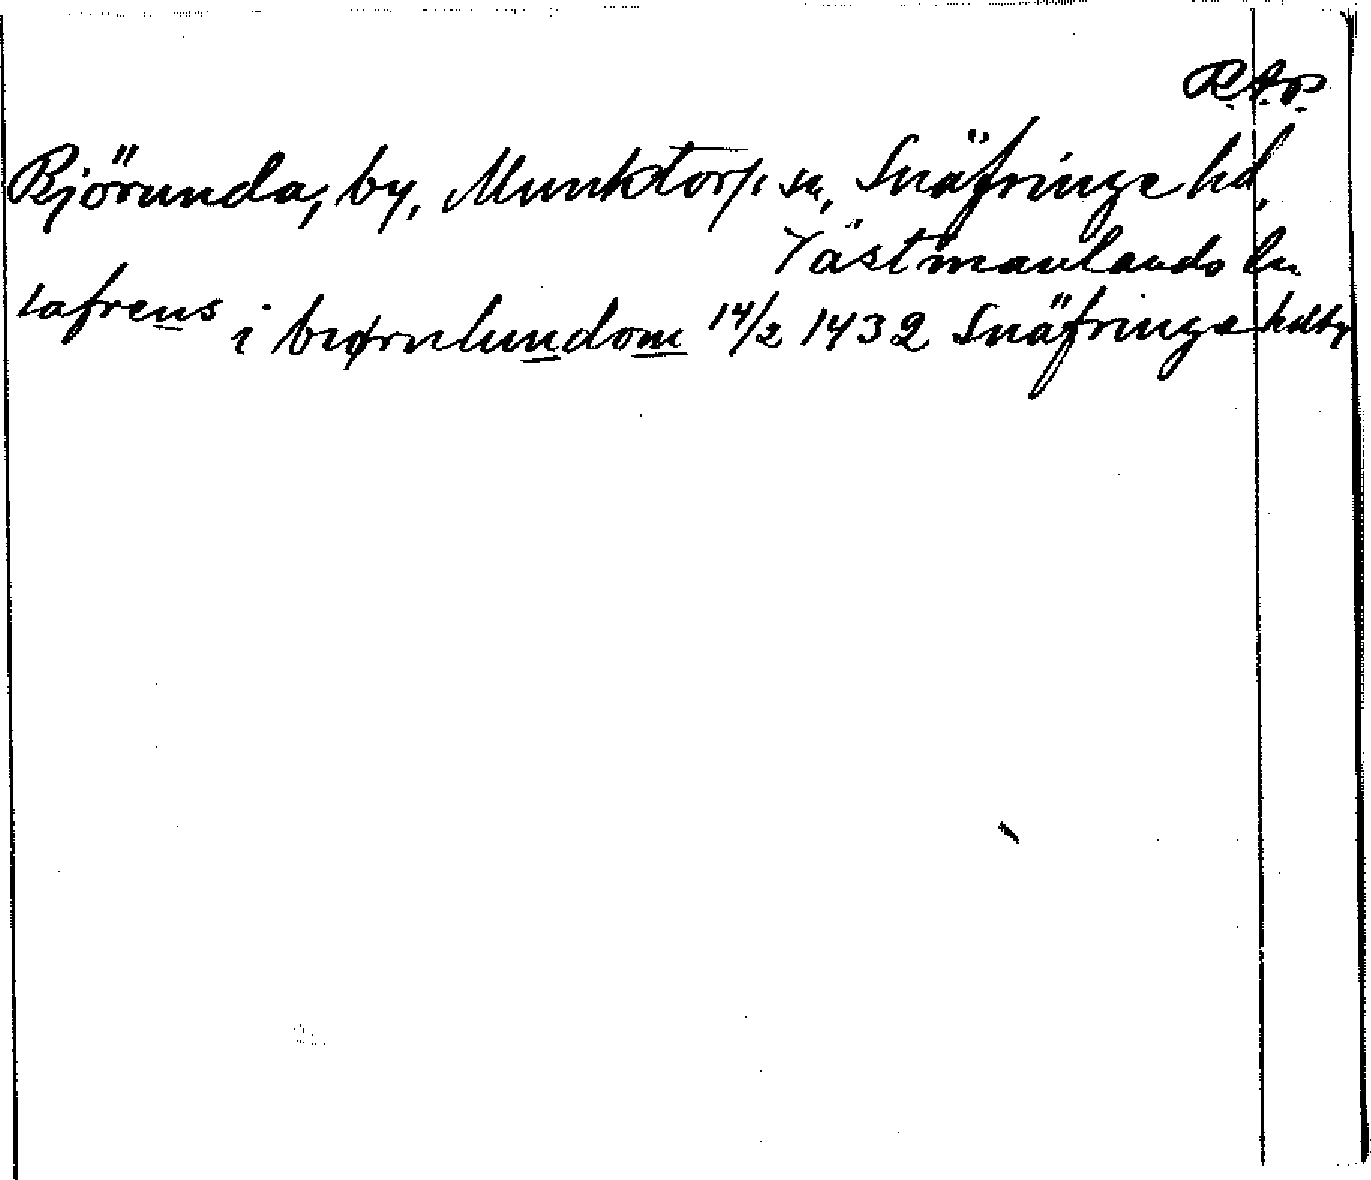 R.A.P.
Björunda, by, Munktorp sn, Snäfringe hd,
Västmanlands ln
lafrens i biørnlundom 14/2 1432 Snäfringe hdtg